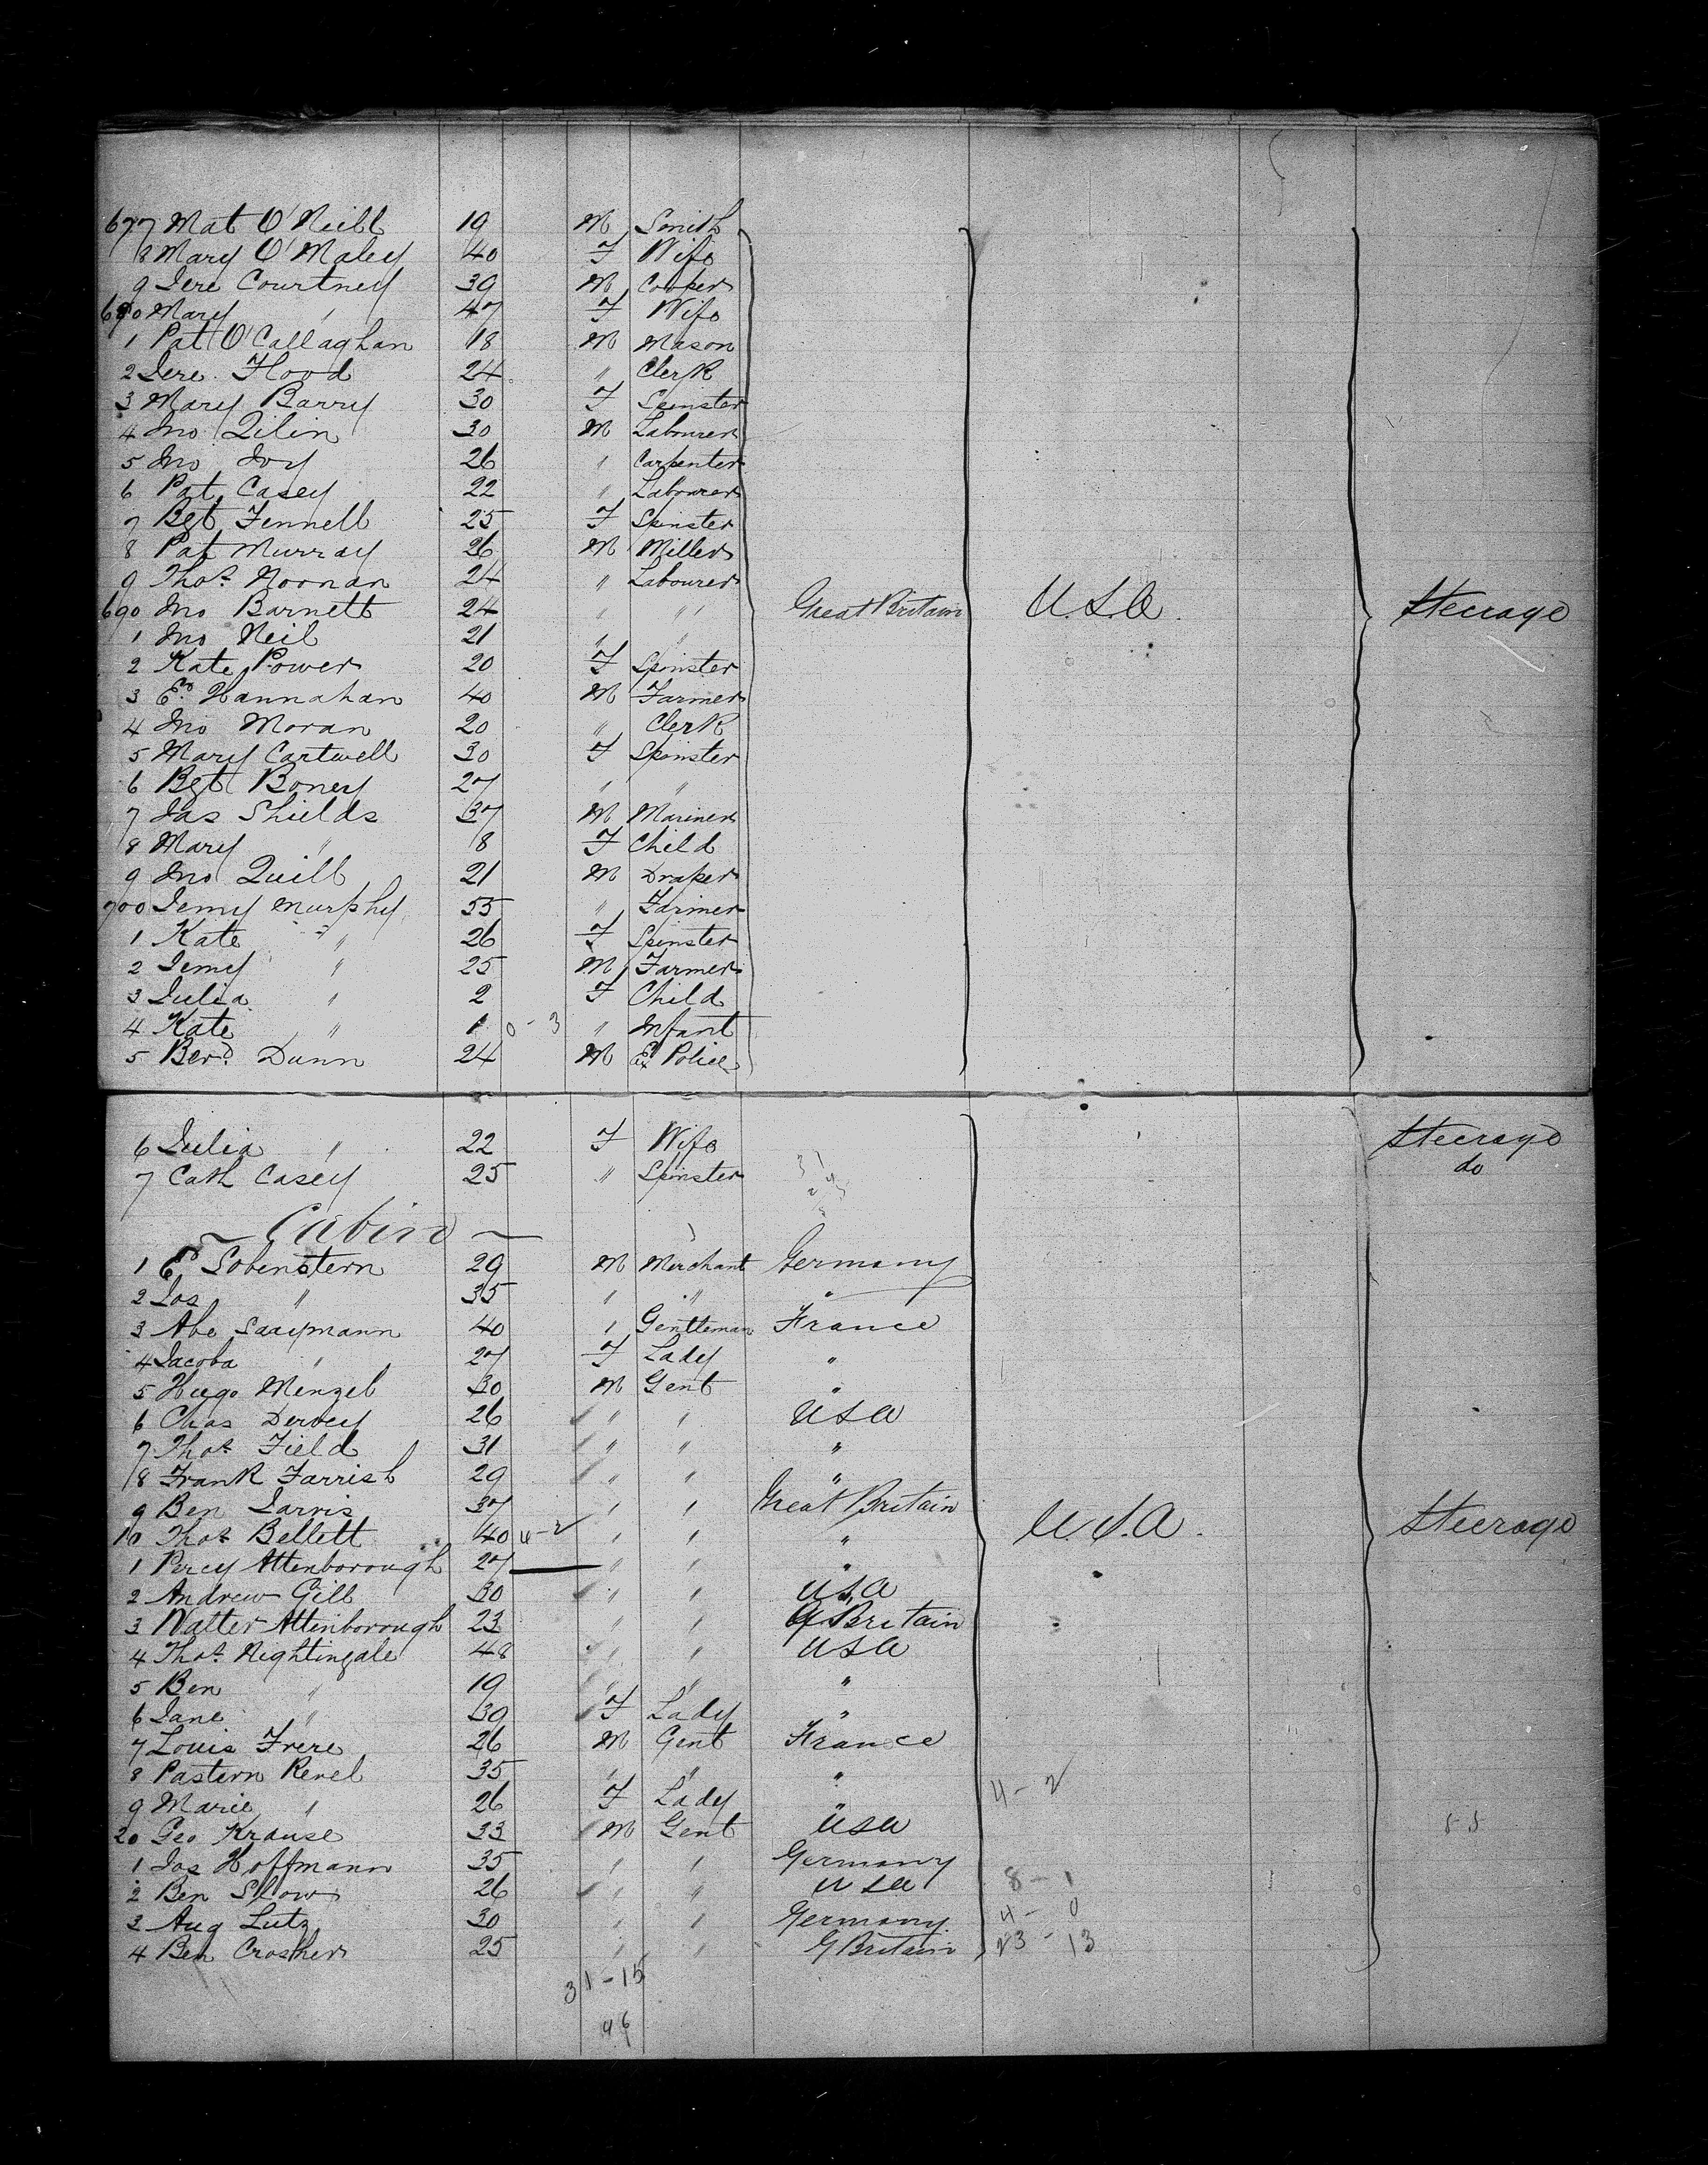 677 Mat O'Neill 19 M Smith
8 Mary O'Maley 40 F Wife
9 Jere Courtney 39 M Cooper
680 Mary " 47 F Wife
1 Pat O'Callaghan 18 M Mason
2 Jere Flood 24 " Clerk
3 Mary Barry 30 F Spinster
4 Jno Qilin 30 M Labourer
5 Jno Joy 26 " Carpenter
6 Pat Casey 22 " Labourer
7 Bgt Fennell 25 F Spinster
8 Pat Murray 26 M Miller
9 Thos Noonan 24 " Labourer
690 Jno Barnett 24 " " Great Britain U.S.A. Steerage
1 Jno Neil 21 " "
2 Kate Power 20 F Spinster
3 Ed Hannahan 40 M Farmer
4 Jno Moran 20 " Clerk
5 Mary Cartwell 30 F Spinster
6 Bgt Boney 27 " "
7 Jas Shields 37 M Mariner
8 Mary " 8 F Child
9 Jno Quill 21 M Draper
700 Jemy Murphy 55 " Farmer
1 Kate " 26 F Spinster
2 Jemy " 25 M Farmer
3 Julia " 2 F Child
4 Kate " 1 0-3 " Infant
5 Berd Dunn 24 M Ex Police
6 Julia " 22 F Wife Steerage
7 Cath Casey 25 " Spinster do
~ Cabin ~
1 E Sobenstern 29 M Merchant Germany
2 Jos " 35 " " "
3 Abe Saaymann 40 " Gentleman France
4 Jacoba " 27 F Lady "
5 Hugo Menzel 30 M Gent "
6 Chas Dervey 26 " " USA
7 Thos Field 31 " " "
8 Frank Farrish 29 " " "
9 Ben Jarvis 37 " " Great Britain
10 Thos Bellett 40 4-2 " " " U.S.A. Steerage
1 Percy Attenborough 27 " " "
2 Andrew Gill 30 " " USA
3 Walter Attenborough 23 " " G Britain
4 Thos Nightingale 48 " " USA
5 Ben " 19 " " "
6 Jane " 39 F Lady "
7 Louis Frere 26 M Gent France
8 Pastern Revel 35 " " "
9 Marie " 26 F Lady " 4-2
20 Geo Krause 33 M Gent USA
1 Jos Hoffmann 35 " " Germany
2 Ben Slow 26 " " USA 8-1
3 Aug Lutz 30 " " Germany 4-0
4 Ben Crosher 25 " " G Britain 23-13
31-15
46